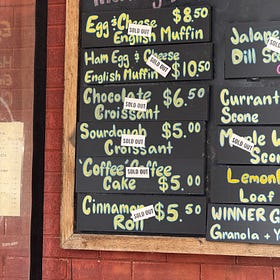 Egg & Cheese $8.50
English Muffin
SOLD OUT
Ham Egg & Cheese
English Muffin $10.50
SOLD OUT
Chocolate $6.50
Croissant
SOLD OUT
Sourdough $5.00
Croissant
SOLD OUT
"Coffee" Coffee
Cake $5.00
SOLD OUT
Cinnamon $5.50
Roll
SOLD OUT
Jalape
Dill Sc
Currant
Scone
SOLD OUT
Maple W
Scone
SOLD OUT
Lemon
Loaf
WINNER G
Granola + Y